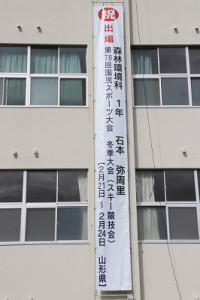 祝出場
森林環境科 1年 石本 弥周里
第78回国民スポーツ大会
冬季大会(スキー競技会)
[2月21日~2月24日 山形県]